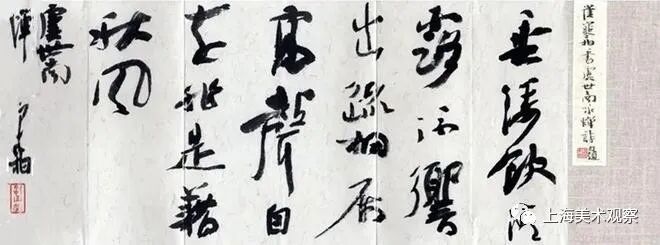 書虞世南詠蟬詩
垂緌飲清
露流響
出疏桐居
高聲自
遠非是藉
秋風
虞世南
蟬
上海美术观察